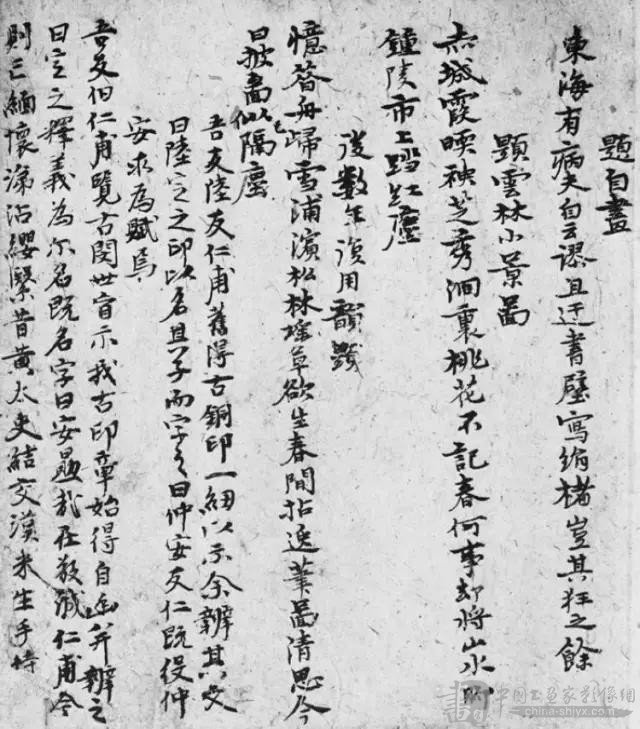 題自畫
東海有病夫自云謬且迂書壁寫絹楮豈其狂之餘
題雲林小景圖
赤城霞暎秧芝秀洞裏桃花不記春何事却將山水
鍾陵市上踏紅塵
後數年復用韻題
憶昔舟歸雪浦濱松林瑤草欲生春間拈逸筆圖清思今
日披圖似隔塵
吾友陸友仁甫舊得古銅印一紐以示余辨其文
曰陸定之印以名其子而字之曰仲安友仁既役仲
安求為賦焉
吾友伯仁甫覽古閱世 示我古印章始得自 并辨之
曰定之釋義為尔名既名字曰安勗哉在敬 仁甫今
則亡緬懷涕沾纓緊昔黃太史結交漢米生手持
書 中国书画家影像網
www.china-shiyx.com